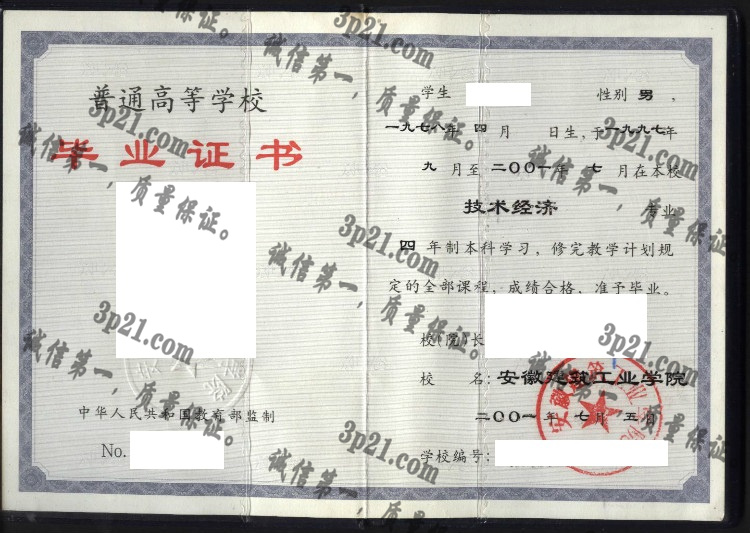 普通高等学校
毕业证书
中华人民共和国教育部监制
No.
学生 性别 男 ，
一九七八年 四 月 日生，于一九九七年
九 月至 二〇〇一年 七 月在本校
技术经济 专业
四 年制本科学习，修完教学计划规
定的全部课程，成绩合格，准予毕业。
校(院)长
校 名：安徽建筑工业学院
二〇〇一年 七 月 五日
学校编号：
3p21.com
诚信第一，质量保证。
3p21.com
诚信第一，质量保证。
3p21.com
诚信第一，质量保证。
3p21.com
诚信第一，质量保证。
3p21.com
诚信第一，质量保证。
3p21.com
诚信第一，质量保证。
3p21.com
诚信第一，质量保证。
3p21.com
诚信第一，质量保证。